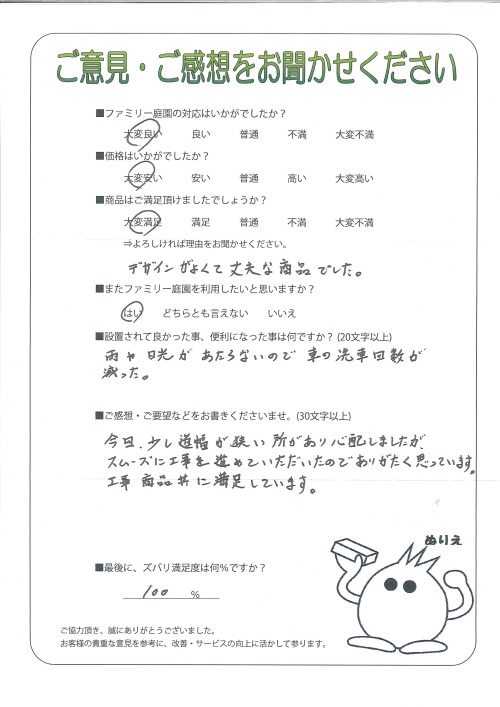 ご意見・ご感想をお聞かせください
■ファミリー庭園の対応はいかがでしたか？
大変良い 良い 普通 不満 大変不満
■価格はいかがでしたか？
大変安い 安い 普通 高い 大変高い
■商品はご満足頂けましたでしょうか？
大変満足 満足 普通 不満 大変不満
⇒よろしければ理由をお聞かせください。
デザインがよくて丈夫な商品でした。
■またファミリー庭園を利用したいと思いますか？
はい どちらとも言えない いいえ
■設置されて良かった事、便利になった事は何ですか？(20文字以上)
雨や日光があたらないので車の洗車回数が
減った。
■ご感想・ご要望などをお書きくださいませ。(30文字以上)
今日、少し道幅が狭い所があり心配しましたが、
スムーズに工事を進めていただいたのでありがたく思っています。
工事商品共に満足しています。
ぬりえ
■最後に、ズバリ満足度は何％ですか？
100 ％
ご協力頂き、誠にありがとうございました。
お客様の貴重な意見を参考に、改善・サービスの向上に活かして参ります。